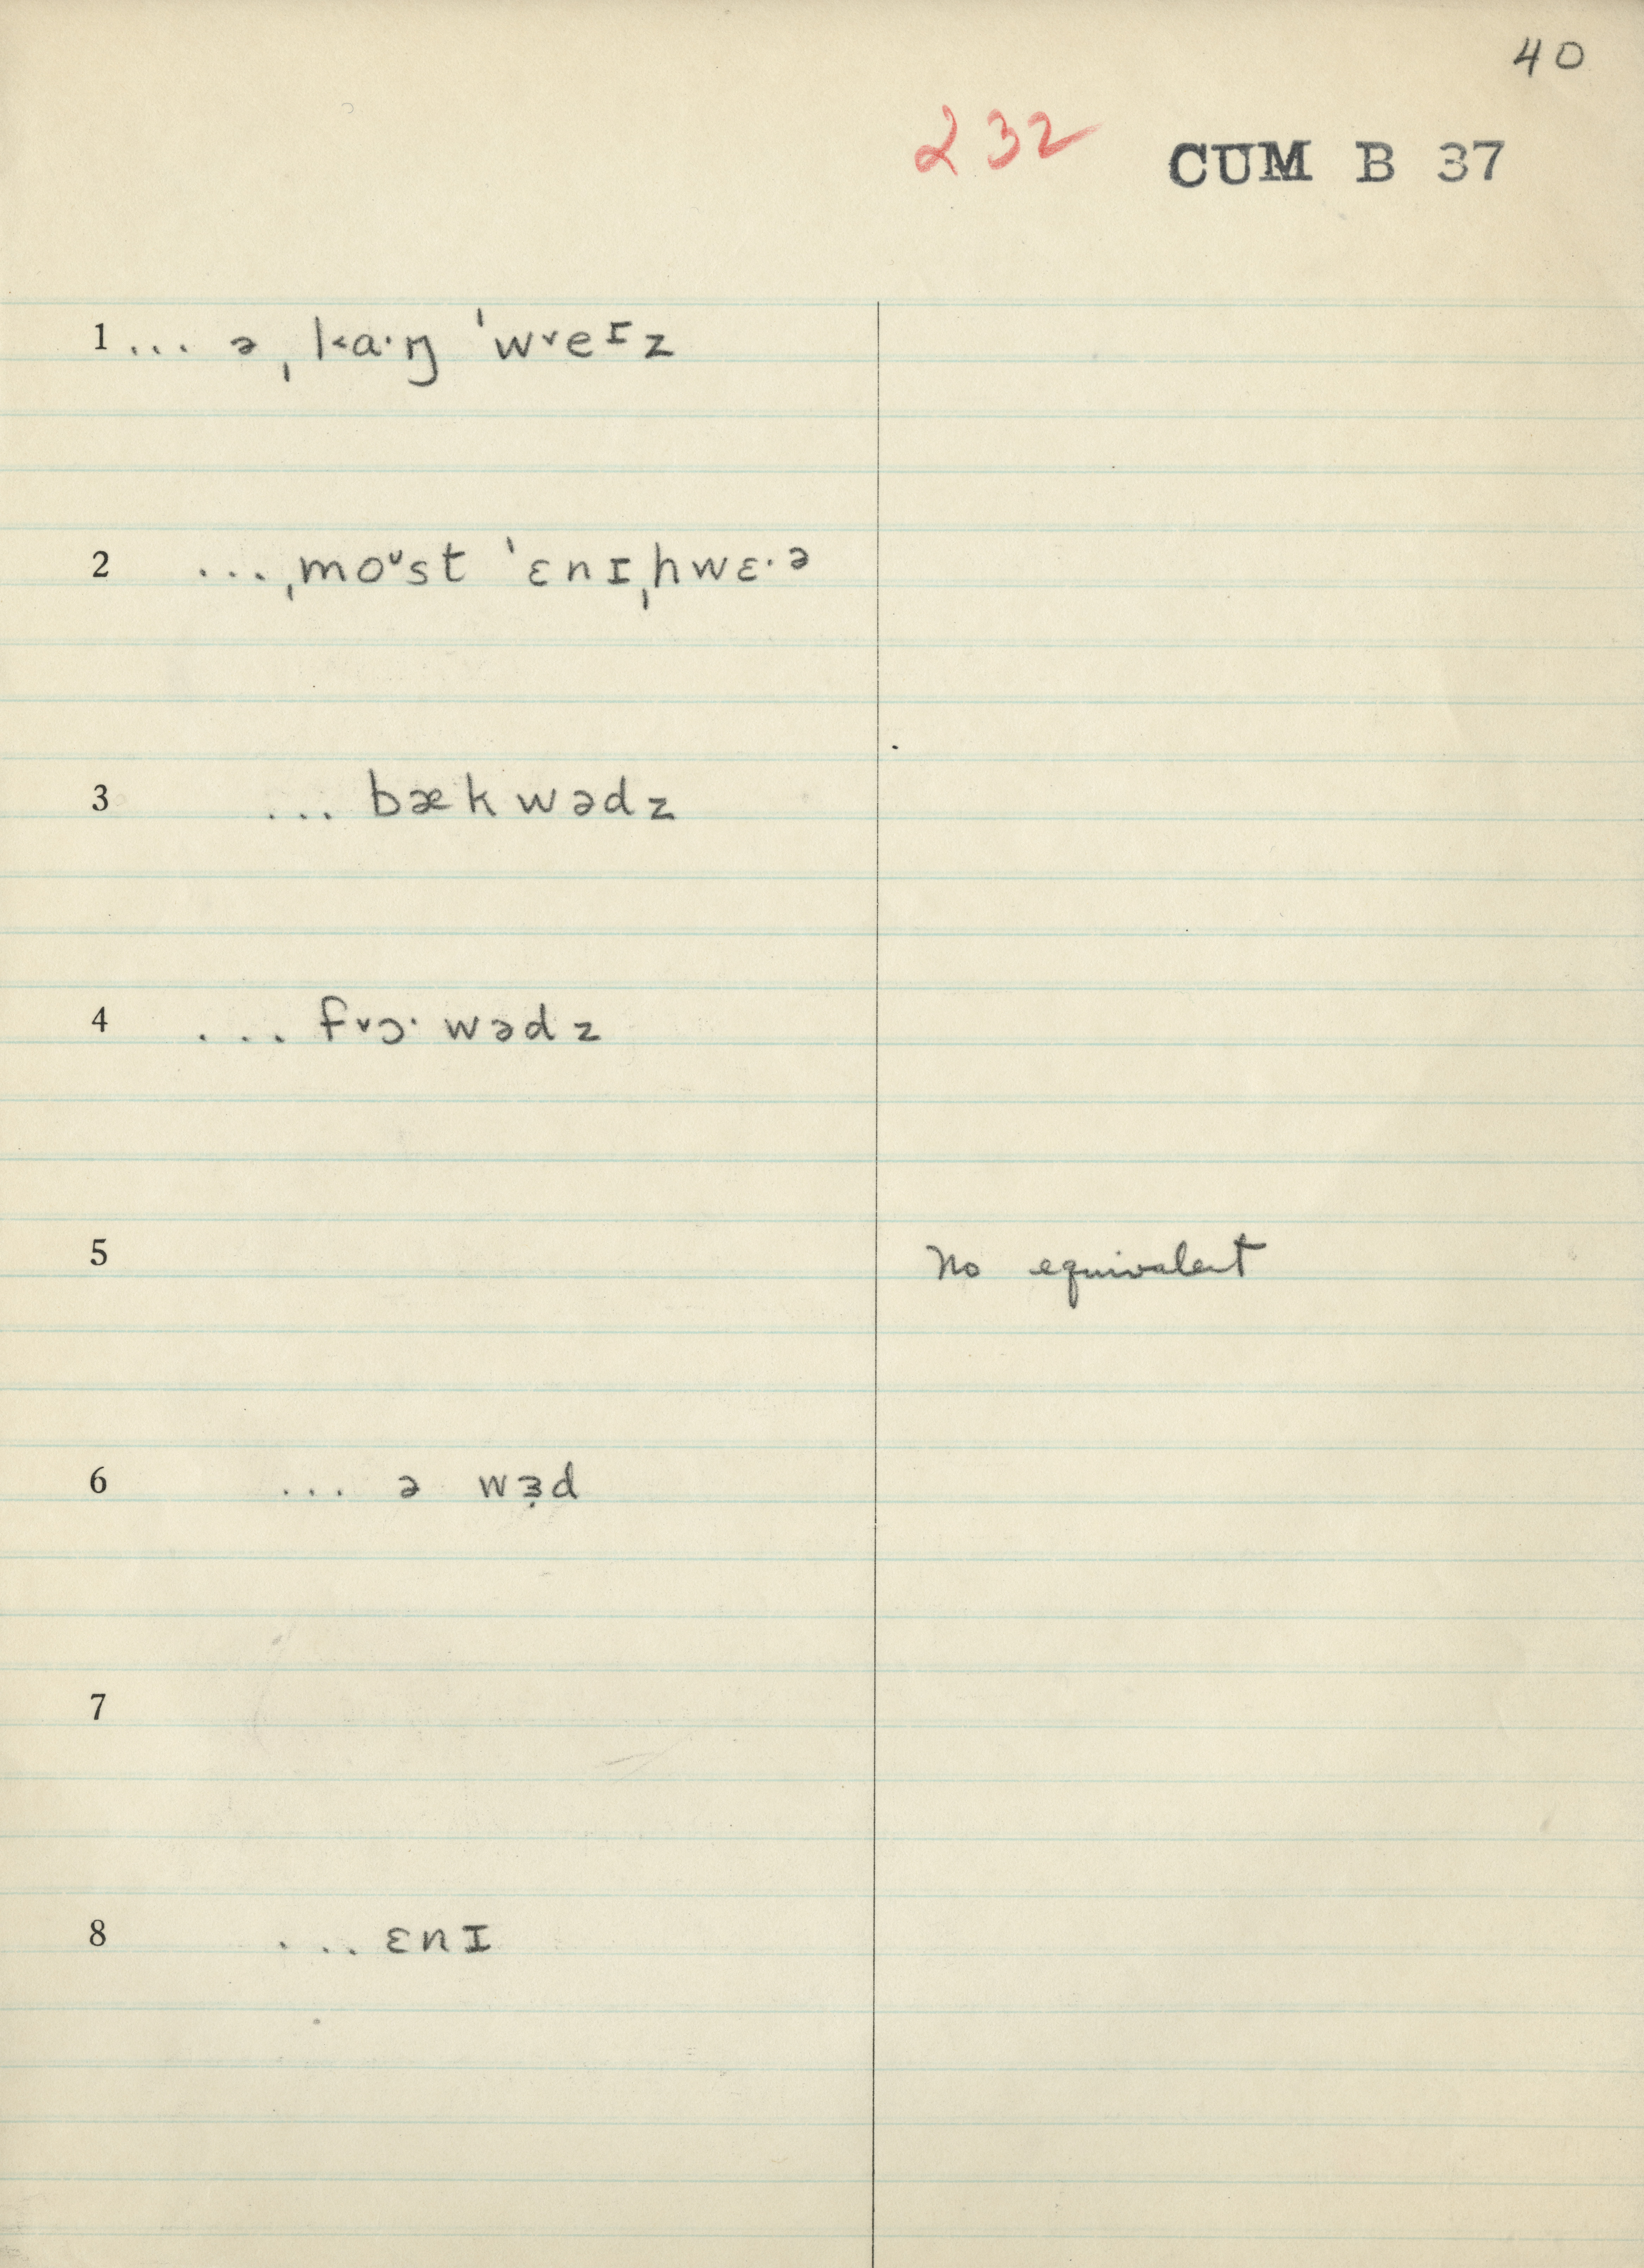 40
232 CUM B 37
1 ... ə ˌl˂a·ŋ ˈw˅eɪz
2 ... ˌmoᶷst ˈɛnɪˌhwɛ·ə
3 ... bækwədz
4 ... f˅ɔ·wədz
5 No equivalent
6 ... ə wɜ̣d
7
8 ... ɛnɪ